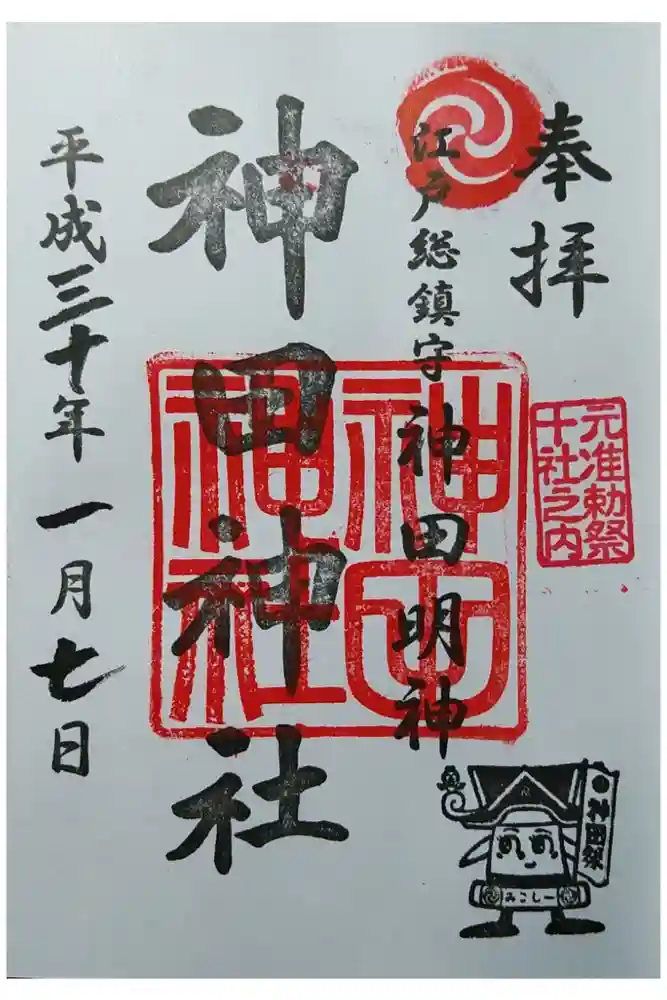 奉拝
元准勅祭
十社之内
江戸総鎮守 神田明神
神田神社
神田神社
平成三十年 一月七日
神田祭
みこしー